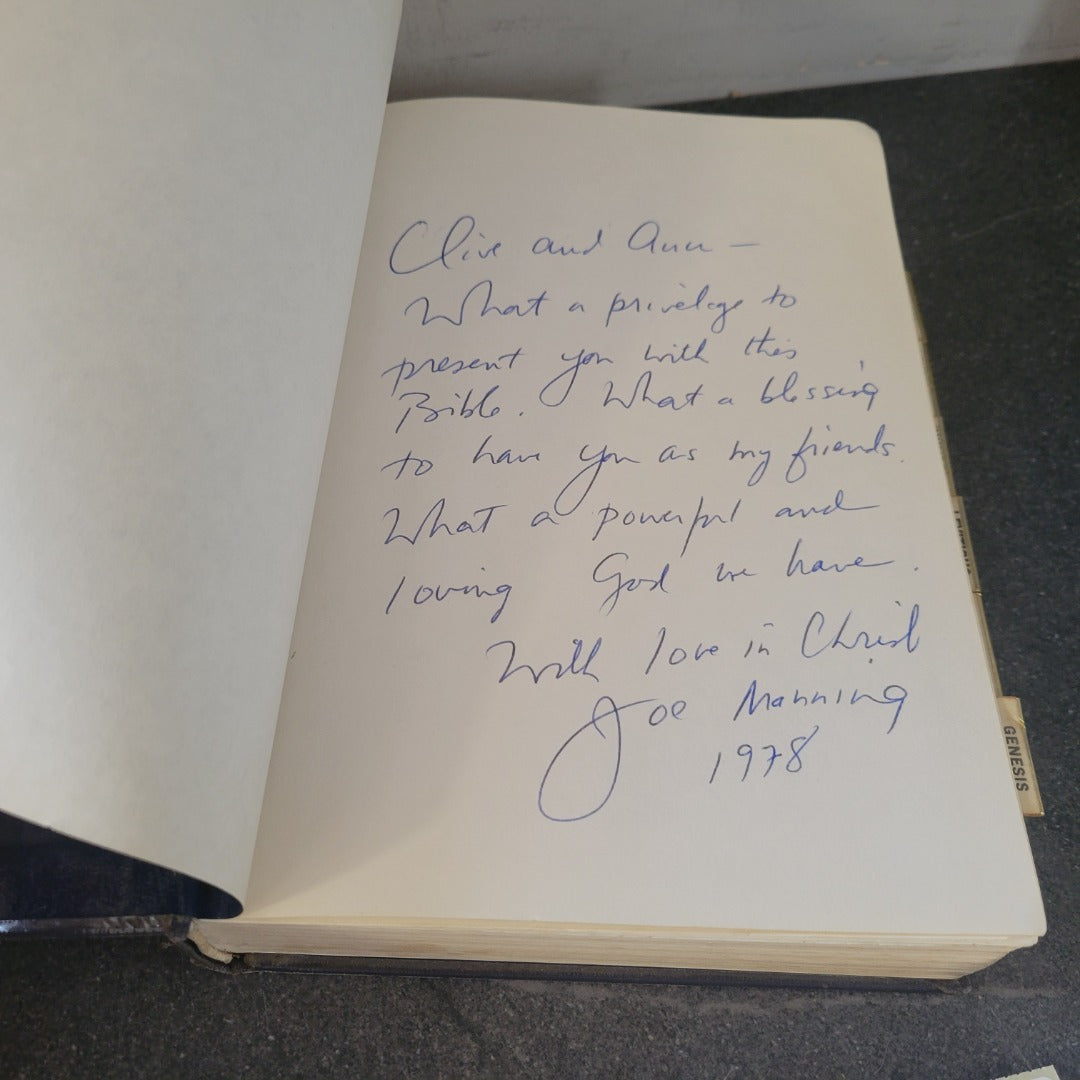 Clive and Ann —
What a privelege to
present you with this
Bible. What a blessing
to have you as my friends.
What a powerful and
loving God we have.
With love in Christ
Joe Manning
1978
LEVITICUS
GENESIS